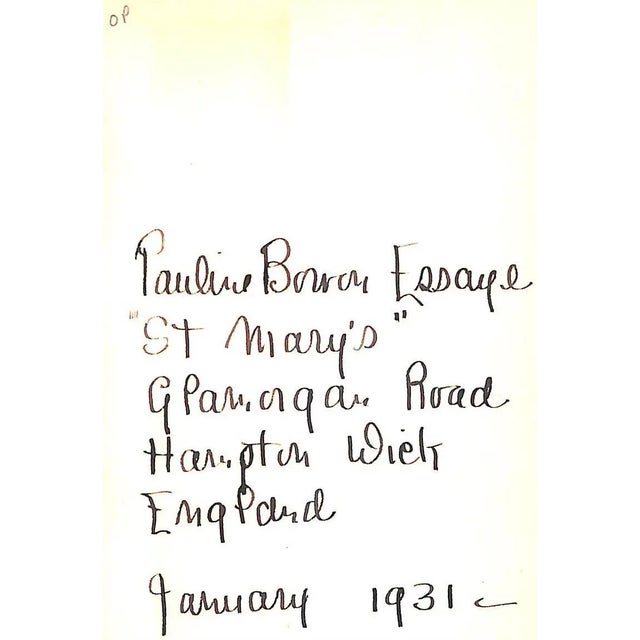 OP
Pauline Bowen Essaye
"St Mary's"
Glamorgan Road
Hampton Wick
England
January 1931